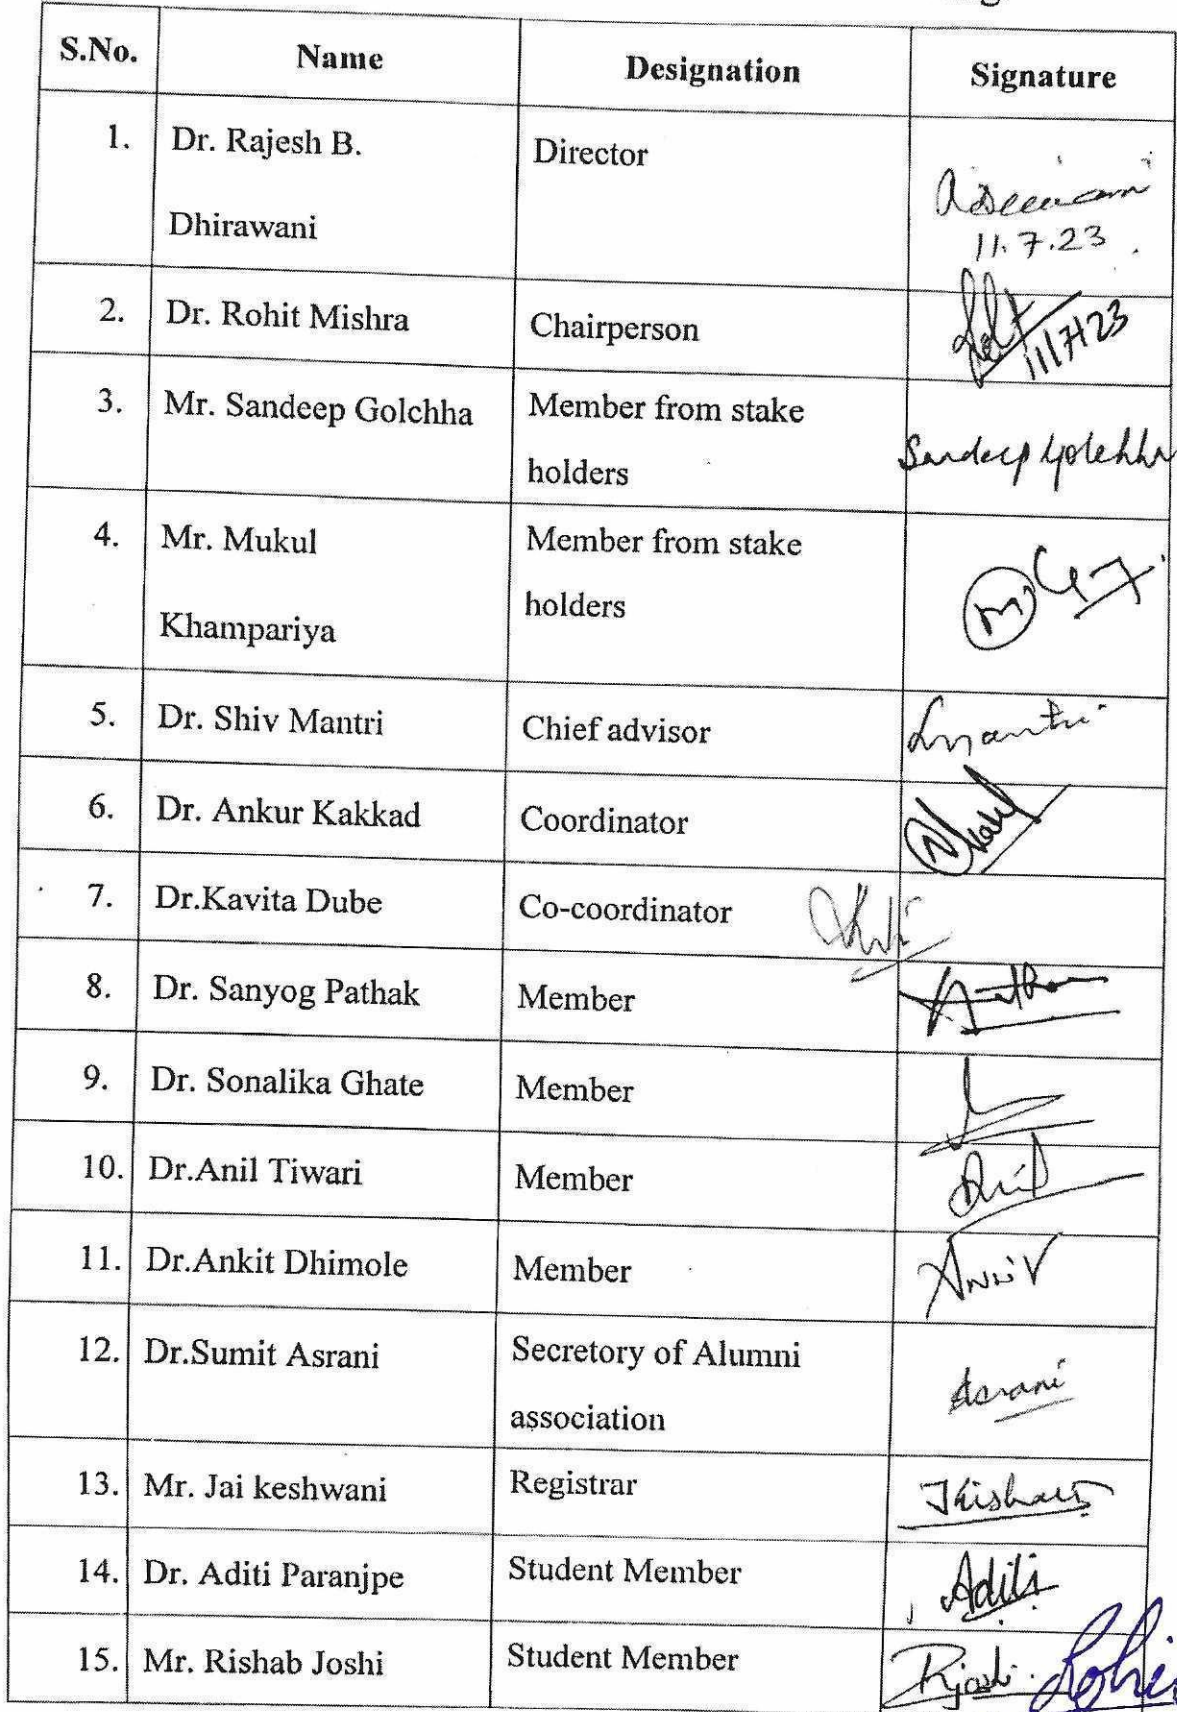 S.No. Name Designation Signature
1. Dr. Rajesh B. Director
Dhirawani
11.7.23
2. Dr. Rohit Mishra Chairperson
11/7/23
3. Mr. Sandeep Golchha Member from stake
holders Sandeep Golchha
4. Mr. Mukul Member from stake
Khampariya holders
5. Dr. Shiv Mantri Chief advisor
6. Dr. Ankur Kakkad Coordinator
7. Dr.Kavita Dube Co-coordinator
8. Dr. Sanyog Pathak Member
9. Dr. Sonalika Ghate Member
10. Dr.Anil Tiwari Member
11. Dr.Ankit Dhimole Member
12. Dr.Sumit Asrani Secretory of Alumni
association Asrani
13. Mr. Jai keshwani Registrar
14. Dr. Aditi Paranjpe Student Member Aditi
15. Mr. Rishab Joshi Student Member Rjoshi